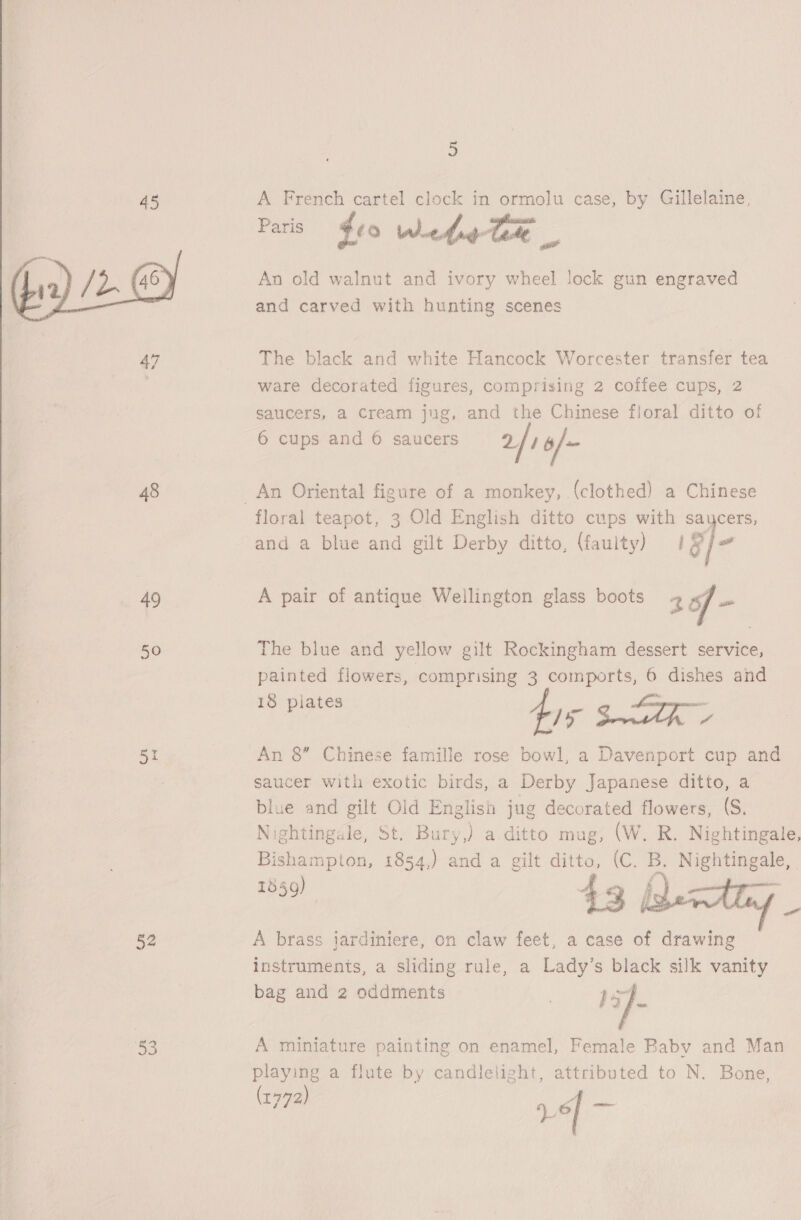 5
45 A French cartel clock in ormolu case, by Gillelaine,
Paris £10
(£12) 12. 46 An old walnut and ivory wheel lock gun engraved
and carved with hunting scenes
47 The black and white Hancock Worcester transfer tea
ware decorated figures, comprising 2 coffee cups, 2
saucers, a cream jug, and the Chinese floral ditto of
6 cups and 6 saucers 2/16/-
48 An Oriental figure of a monkey, (clothed) a Chinese
floral teapot, 3 Old English ditto cups with saucers,
and a blue and gilt Derby ditto, (faulty) 18/-
49 A pair of antique Wellington glass boots 35/-
50 The blue and yellow gilt Rockingham dessert service,
painted flowers, comprising 3 comports, 6 dishes and
18 plates £15 Smith -
51 An 8” Chinese famille rose bowl, a Davenport cup and
saucer with exotic birds, a Derby Japanese ditto, a
blue and gilt Old English jug decorated flowers, (S.
Nightingale, St. Bury,) a ditto mug, (W. R. Nightingale,
Bishampton, 1854,) and a gilt ditto, (C. B. Nightingale,
1859) £3 Bentley -
52 A brass jardiniere, on claw feet, a case of drawing
instruments, a sliding rule, a Lady’s black silk vanity
bag and 2 oddments 15/-
53 A miniature painting on enamel, Female Baby and Man
playing a flute by candlelight, attributed to N. Bone,
(1772) 26/-